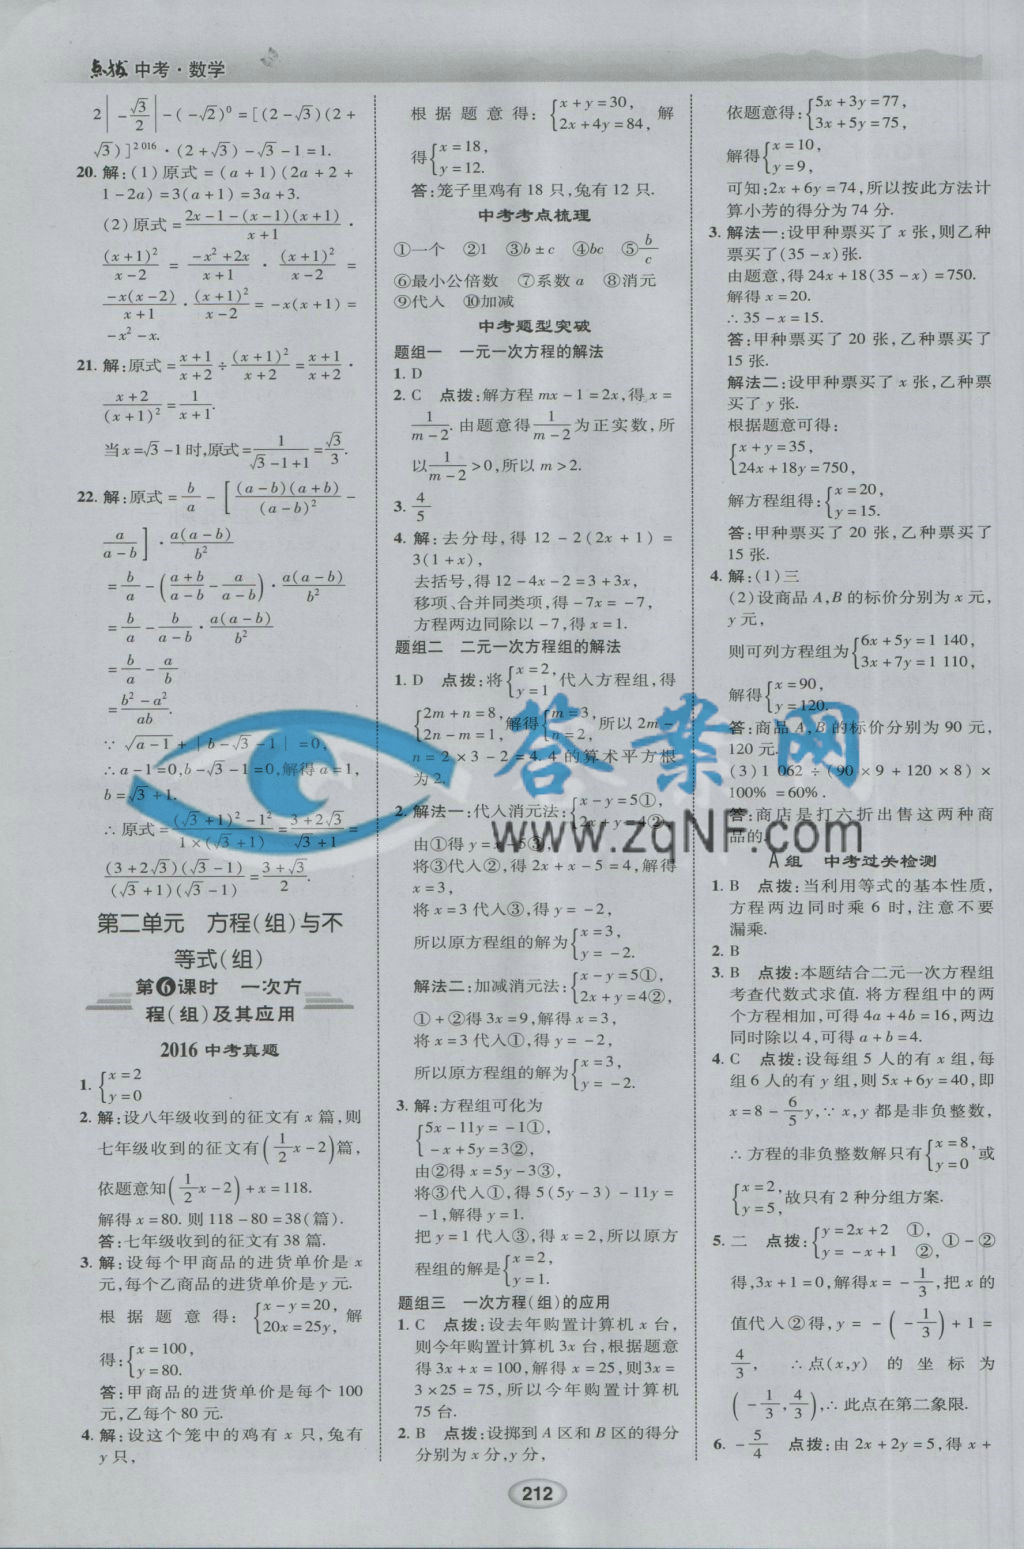 点拨 中考·数学
2|-√3/2|-(-√2)⁰=[(2-√3)(2+
√3)]²⁰¹⁶·(2+√3)-√3-1=1.
20. 解:(1)原式=(a+1)(2a+2+
1-2a)=3(a+1)=3a+3.
(2)原式=(2x-1-(x-1)(x+1))/(x+1)·
(x+1)²/(x-2)=(-x²+2x)/(x+1)·(x+1)²/(x-2)=
-x(x-2)/(x+1)·(x+1)²/(x-2)=-x(x+1)=
-x²-x.
21. 解:原式=(x+1)/(x+2)÷(x+1)²/(x+2)=(x+1)/(x+2)·
(x+2)/(x+1)²=1/(x+1).
当x=√3-1时,原式=1/(√3-1+1)=√3/3.
22. 解:原式=b/a-[(a-b)(a+b)/(a-b)²-
a/(a-b)]·a(a-b)/b²
=b/a-((a+b)/(a-b)-a/(a-b))·a(a-b)/b²
=b/a-b/(a-b)·a(a-b)/b²
=b/a-a/b
=(b²-a²)/ab.
∵√(a-1)+|b-√3-1|=0,
∴a-1=0,b-√3-1=0,解得a=1,
b=√3+1.
∴原式=((√3+1)²-1²)/(1×(√3+1))=(3+2√3)/(√3+1)=
(3+2√3)(√3-1)/((√3+1)(√3-1))=(3+√3)/2.
第二单元 方程(组)与不
等式(组)
第6课时 一次方
程(组)及其应用
2016中考真题
1. {x=2
y=0
2. 解:设八年级收到的征文有x篇,则
七年级收到的征文有(1/2x-2)篇,
依题意知(1/2x-2)+x=118.
解得x=80.则118-80=38(篇).
答:七年级收到的征文有38篇.
3. 解:设每个甲商品的进货单价是x
元,每个乙商品的进货单价是y元.
根据题意得:{x-y=20, 20x=25y,解
得:{x=100, y=80.
答:甲商品的进货单价是每个100
元,乙每个80元.
4. 解:设这个笼中的鸡有x只,兔有
y只,
根据题意得:{x+y=30, 2x+4y=84,解
得{x=18, y=12.
答:笼子里鸡有18只,兔有12只.
中考考点梳理
①一个 ②1 ③b±c ④bc ⑤b/c
⑥最小公倍数 ⑦系数a ⑧消元
⑨代入 ⑩加减
中考题型突破
题组一 一元一次方程的解法
1. D
2. C 点拨:解方程mx-1=2x,得x=
1/(m-2).由题意得1/(m-2)为正实数,所
以1/(m-2)>0,所以m>2.
3. 4/5
4. 解:去分母,得12-2(2x+1)=
3(1+x),
去括号,得12-4x-2=3+3x,
移项、合并同类项,得-7x=-7,
方程两边同除以-7,得x=1.
题组二 二元一次方程组的解法
1. D 点拨:将{x=2, y=1代入方程组,得
{2m+n=8, 2n-m=1,解得{m=3, n=2,所以2m-
n=2×3-2=4.4的算术平方根
为2.
2. 解法一:代入消元法:{x-y=5①, 2x+y=4②,
由①得y=x-5③,
将③代入②,得2x+x-5=4,解得
x=3,
将x=3代入③,得y=-2,
所以原方程组的解为{x=3, y=-2.
解法二:加减消元法:{x-y=5①, 2x+y=4②,
①+②得3x=9,解得x=3,
将x=3代入①,得y=-2,
所以原方程组的解为{x=3, y=-2.
3. 解:方程组可化为
{5x-11y=-1①,
-x+5y=3②,
由②得x=5y-3③,
将③代入①,得5(5y-3)-11y=
-1,解得y=1.
把y=1代入③,得x=2,所以原方
程组的解是{x=2, y=1.
题组三 一次方程(组)的应用
1. C 点拨:设去年购置计算机x台,
则今年购置计算机3x台,根据题意
得3x+x=100,解得x=25,则3x=
3×25=75,所以今年购置计算机
75台.
2. B 点拨:设掷到A区和B区的得分
分别为x分,y分,
依题意得:{5x+3y=77, 3x+5y=75,
解得{x=10, y=9,
可知:2x+6y=74,所以按此方法计
算小芳的得分为74分.
3. 解法一:设甲种票买了x张,则乙种
票买了(35-x)张.
由题意,得24x+18(35-x)=750.
解得x=20.
∴35-x=15.
答:甲种票买了20张,乙种票买了
15张.
解法二:设甲种票买了x张,乙种票
买了y张.
根据题意可得:
{x+y=35,
24x+18y=750,
解方程组得:{x=20, y=15.
答:甲种票买了20张,乙种票买了
15张.
4. 解:(1)三
(2)设商品A,B的标价分别为x元,
y元,
则可列方程组为{6x+5y=1 140, 3x+7y=1 110,
解得{x=90, y=120.
答:商品A,B的标价分别为90元,
120元.
(3)1 062÷(90×9+120×8)×
100%=60%.
答:商店是打六折出售这两种商
品的.
A组 中考过关检测
1. B 点拨:当利用等式的基本性质,
方程两边同时乘6时,注意不要
漏乘.
2. B
3. B 点拨:本题结合二元一次方程组
考查代数式求值.将方程组中的两
个方程相加,可得4a+4b=16,两边
同时除以4,可得a+b=4.
4. C 点拨:设每组5人的有x组,每
组6人的有y组,则5x+6y=40,即
x=8-6/5y,∵x,y都是非负整数,
∴方程的非负整数解只有{x=8, y=0或
{x=2, y=5,故只有2种分组方案.
5. 二 点拨:{y=2x+2 ①, y=-x+1 ②,①-②
得,3x+1=0,解得x=-1/3,把x的
值代入②得,y=-(-1/3)+1=
4/3,∴点(x,y)的坐标为
(-1/3,4/3),∴此点在第二象限.
6. -5/4 点拨:由2x+2y=5,得x+
212
答案网
www.zqNF.com